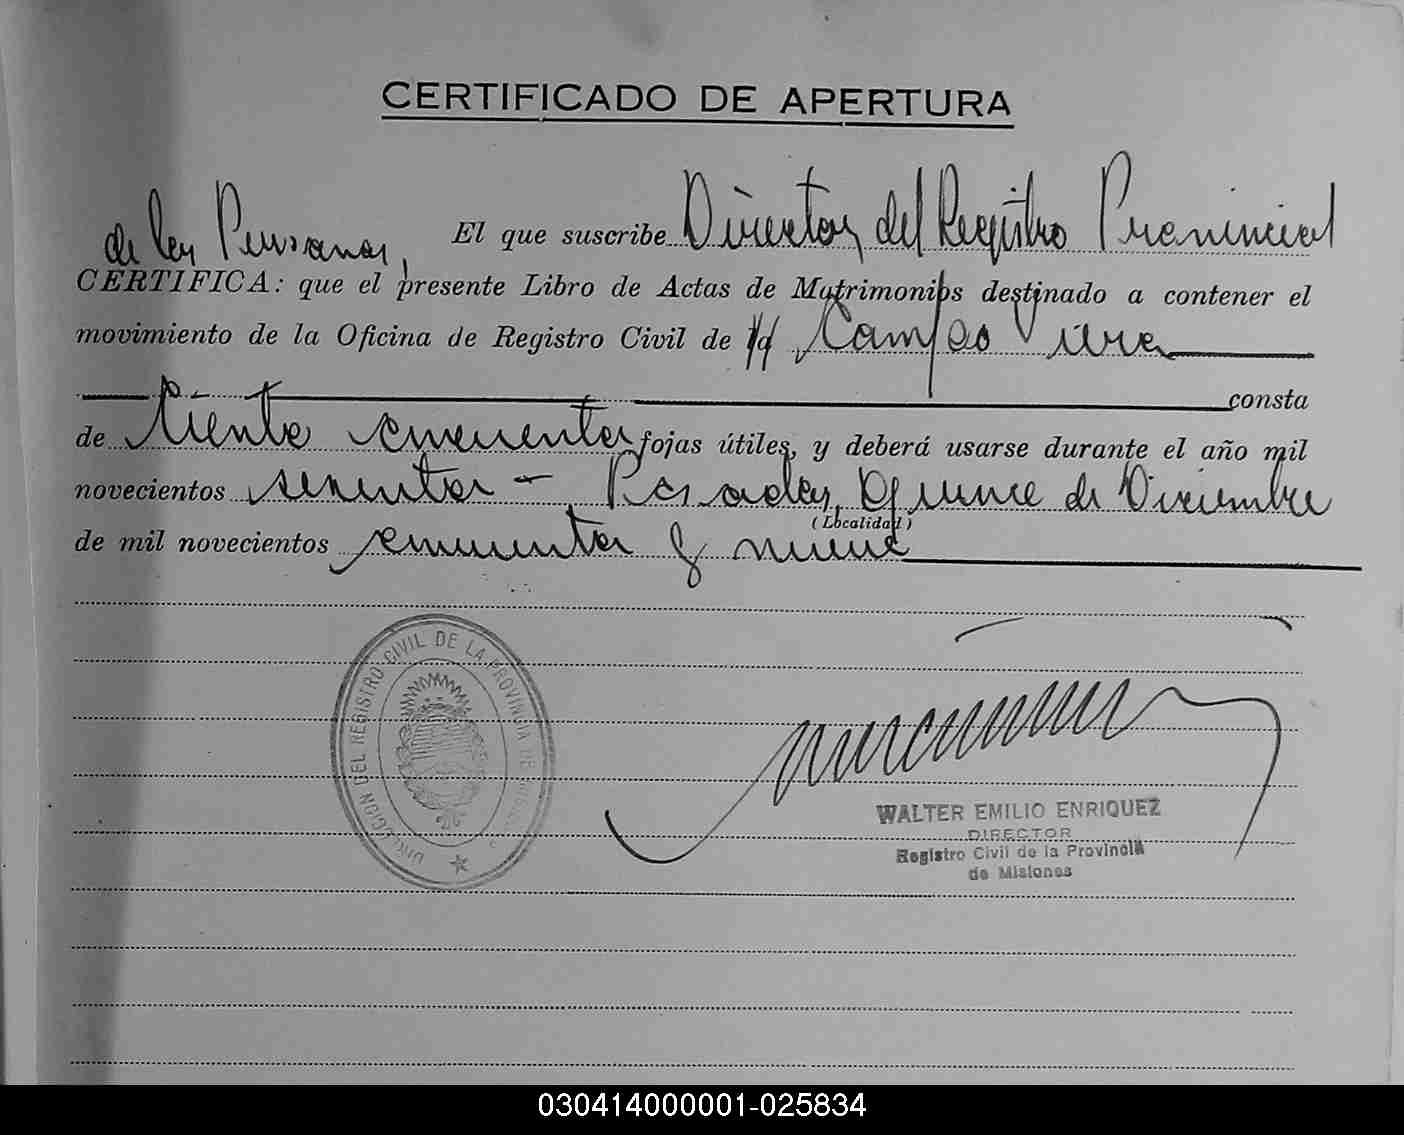 CERTIFICADO DE APERTURA
El que suscribe Director del Registro Provincial
de las Personas,
CERTIFICA: que el presente Libro de Actas de Matrimonios destinado a contener el
movimiento de la Oficina de Registro Civil de Campo Viera
consta
de Ciento cincuenta fojas útiles, y deberá usarse durante el año mil
novecientos sesenta - Posadas, Quince de Diciembre
(Localidad)
de mil novecientos cincuenta y nueve
DIRECCION DEL REGISTRO CIVIL DE LA PROVINCIA DE MISIONES
WALTER EMILIO ENRIQUEZ
DIRECTOR
Registro Civil de la Provincia
de Misiones
030414000001-025834